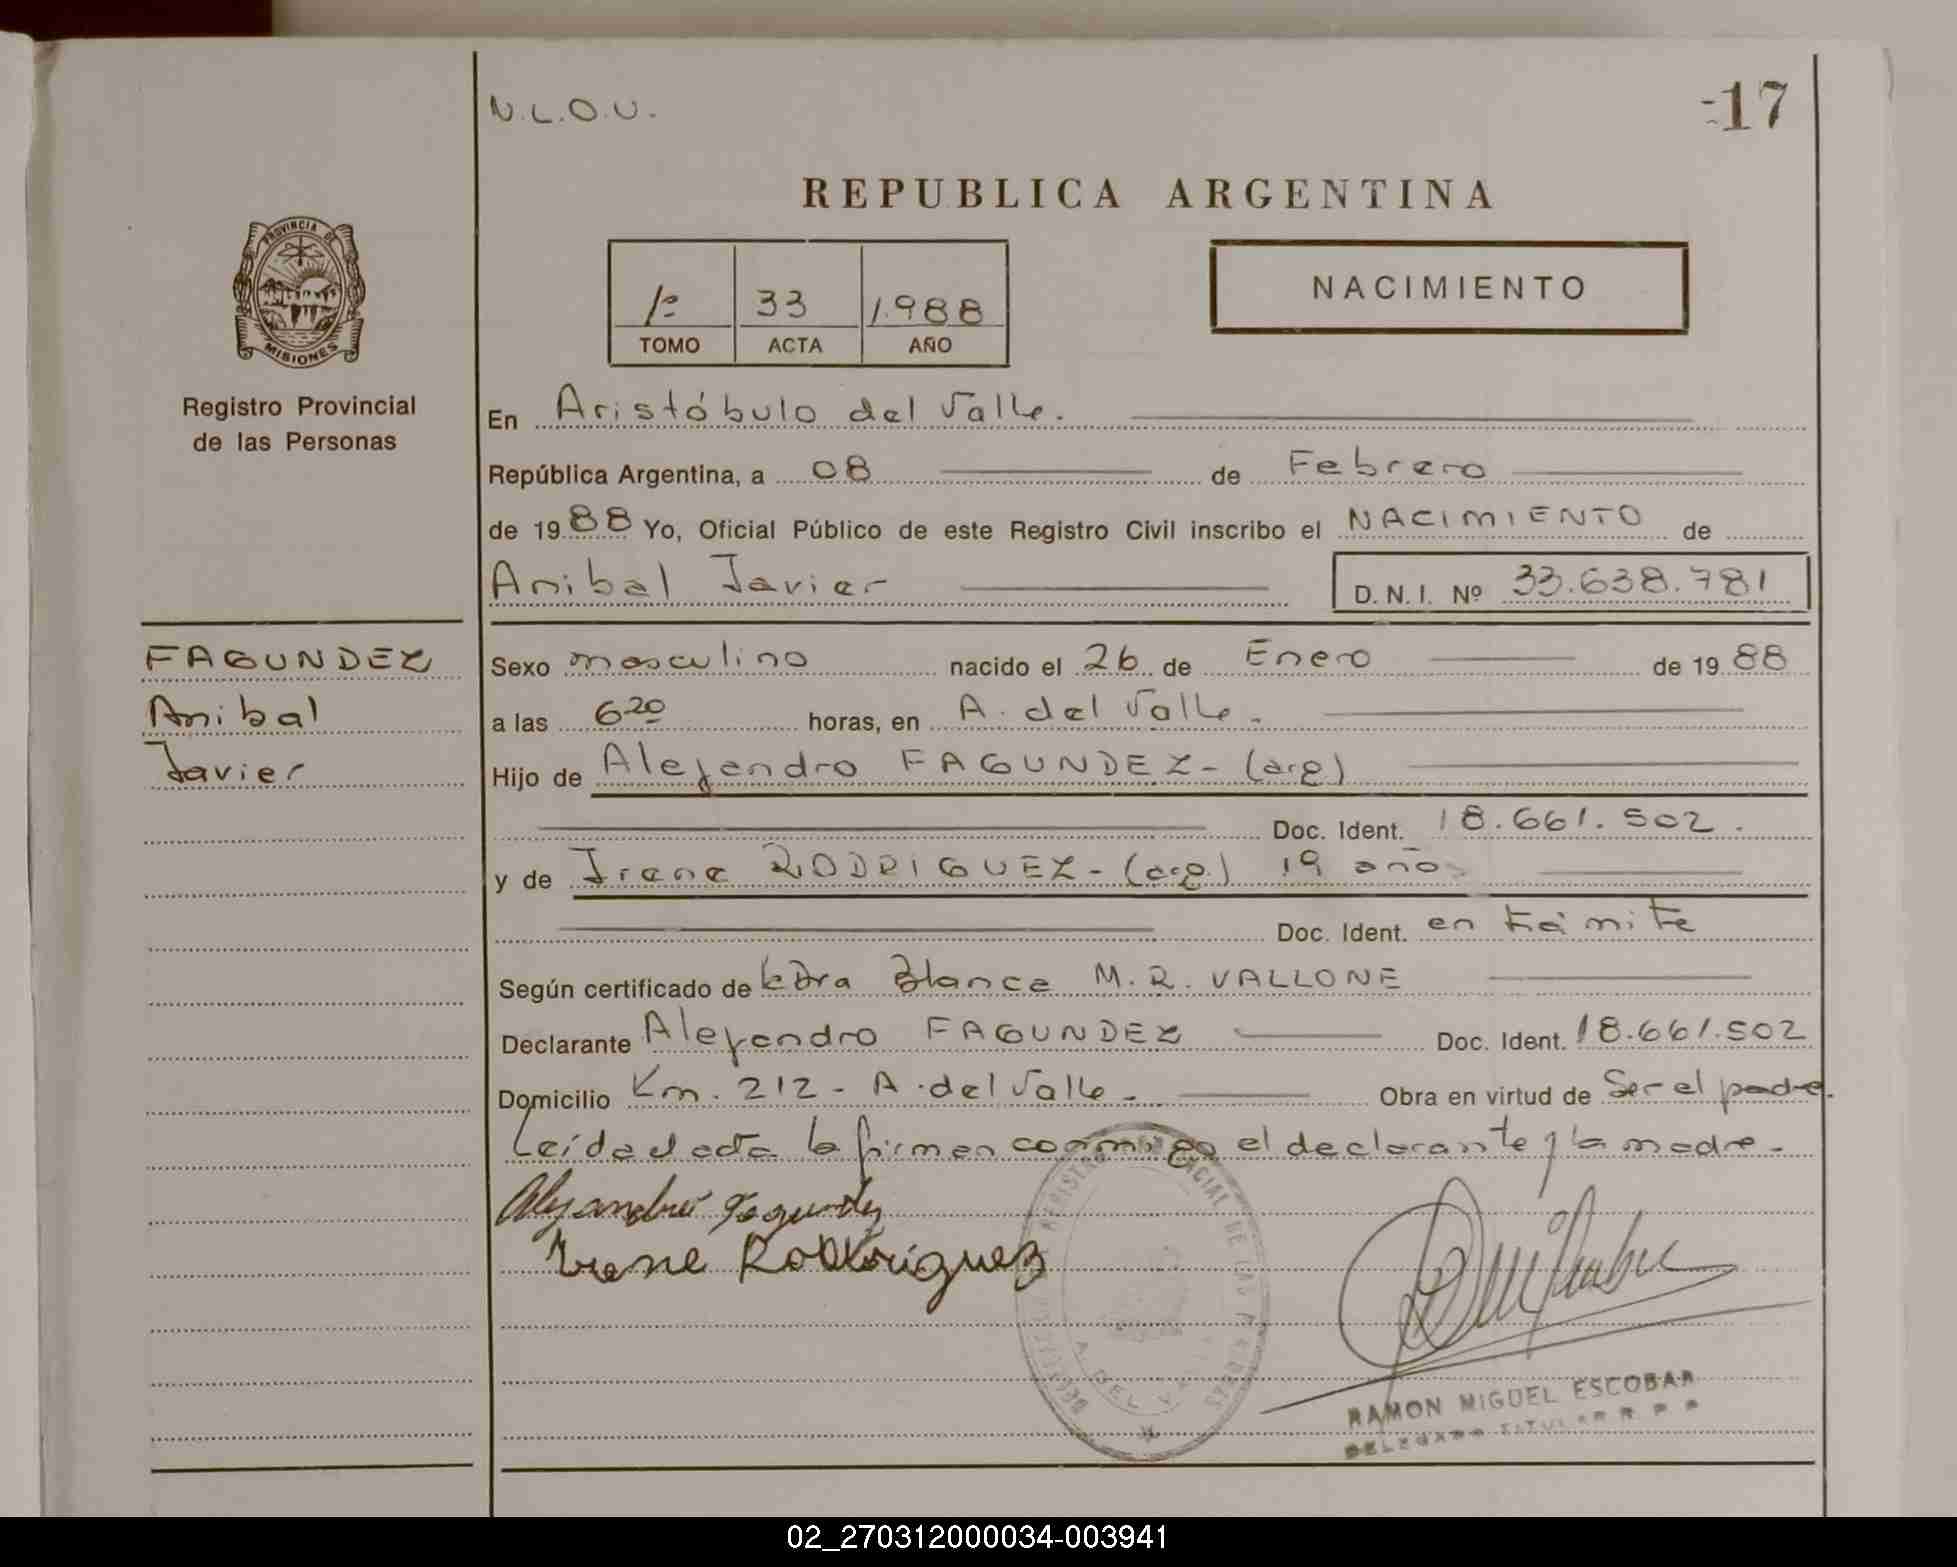 N.L.O.U.
17
REPUBLICA ARGENTINA
PROVINCIA DE
MISIONES
Registro Provincial
de las Personas
1º 33 1.988
TOMO ACTA AÑO
NACIMIENTO
En Aristóbulo del Valle.
República Argentina, a 08 de Febrero
de 1988 Yo, Oficial Público de este Registro Civil inscribo el NACIMIENTO de
Anibal Javier D.N.I. Nº 33.638.781
FAGUNDEZ
Anibal
Javier
Sexo masculino nacido el 26 de Enero de 1988
a las 6 20 horas, en A. del Valle.
Hijo de Alejandro FAGUNDEZ - (arg)
Doc. Ident. 18.661.502.
y de Irene RODRIGUEZ - (arg.) 19 años
Doc. Ident. en trámite
Según certificado de Dra Blanca M. R. VALLONE
Declarante Alejandro FAGUNDEZ Doc. Ident. 18.661.502
Domicilio Km. 212 - A. del Valle - Obra en virtud de Ser el padre.
Leída el acta la firman conmigo el declarante y la madre -
Alejandro Fagundez
Irene Rodriguez
REGISTRO PROVINCIAL DE LAS PERSONAS
A. DEL VALLE
RAMON MIGUEL ESCOBAR
DELEGADO TITULAR R. P. P.
02_270312000034-003941